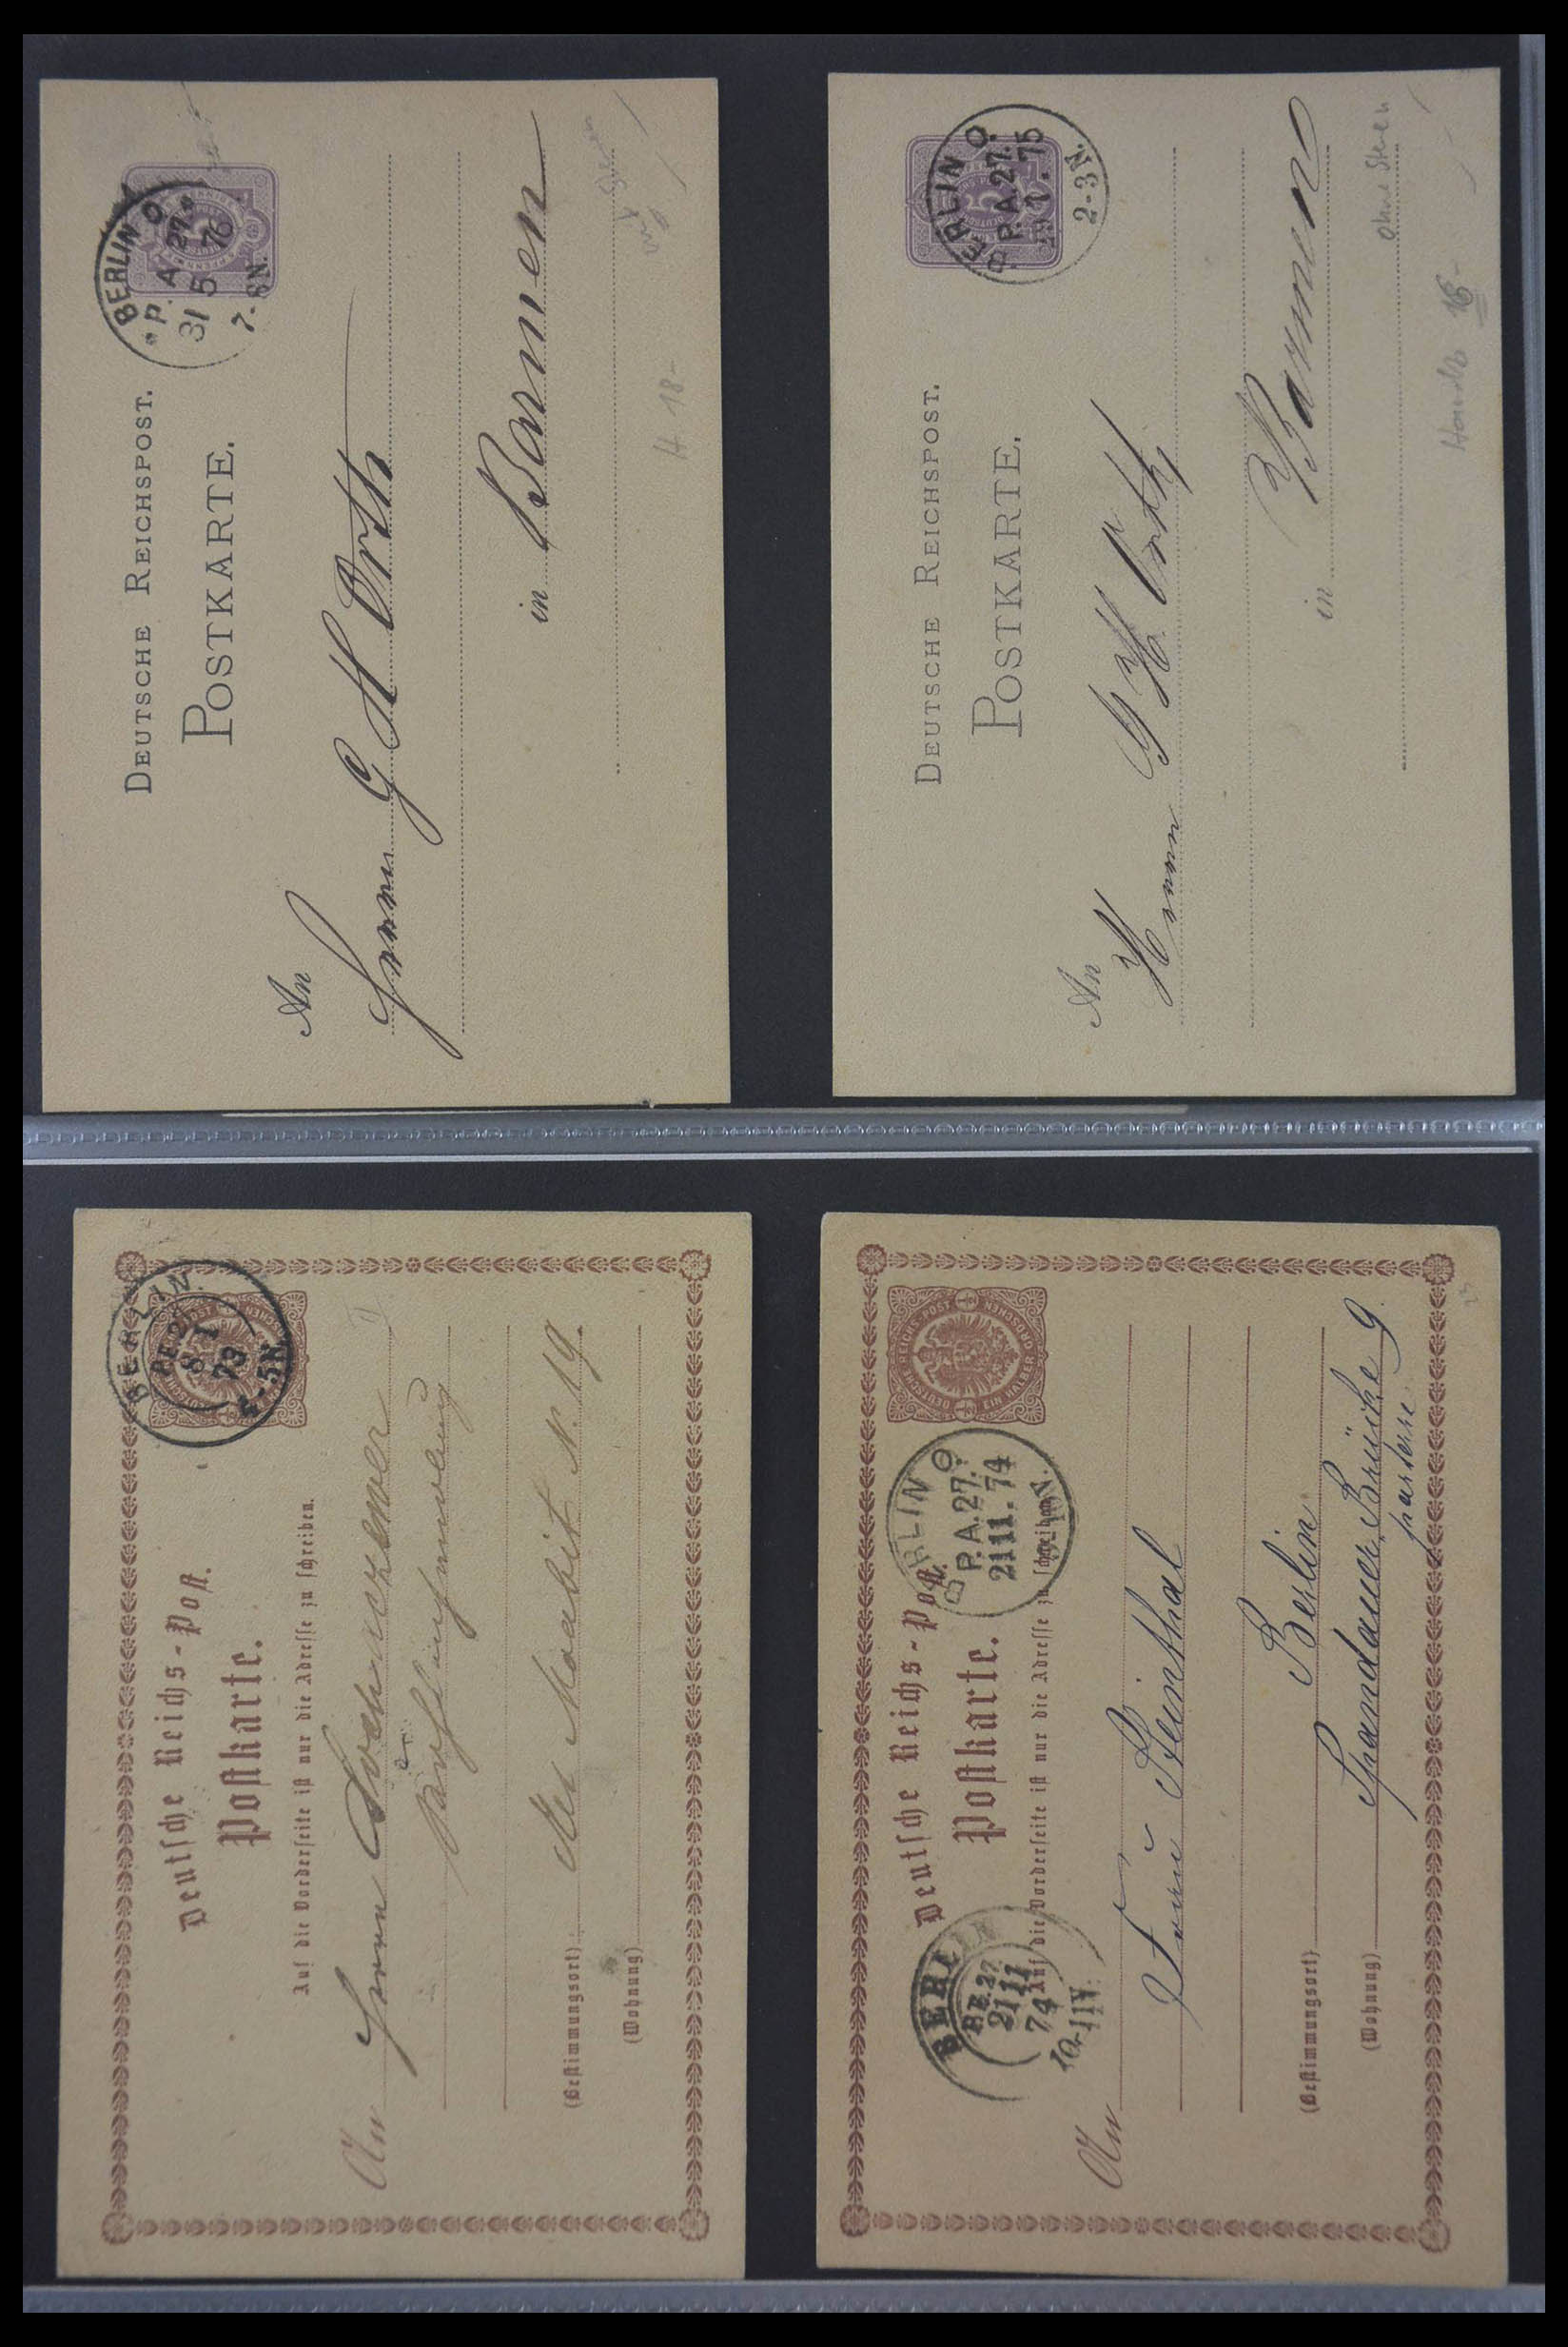 BERLIN O.
P. A. 27.
31 5 76
7-8N.
DEUTSCHE REICHSPOST.
POSTKARTE.
An
Herrn G H Orth
in Barmen
H 18-
BERLIN O.
P.A.27.
29 1. 75
2-3N.
DEUTSCHE REICHSPOST.
POSTKARTE.
An
Herrn G H Orth
in Barmen
ohne Stern
18-
BERLIN
P.E. 27
8 I
73
4-5N.
Deutsche Reichs-Post.
Postkarte.
Auf die Vorderseite ist nur die Adresse zu schreiben.
An Herrn
Alt Moabit N. 19.
(Bestimmungsort)
(Wohnung)
DEUTSCHE REICHS-POST
EIN HALBER GROSCHEN
BERLIN O.
P.A.27.
21 11. 74
Deutsche Reichs-Post.
Postkarte.
Auf die Vorderseite ist nur die Adresse zu schreiben.
BERLIN
P.E. 27
21 11
74
10-11V.
An
Frau Steinthal
(Bestimmungsort) Berlin
(Wohnung) Spandauer Brücke 9.
parterre